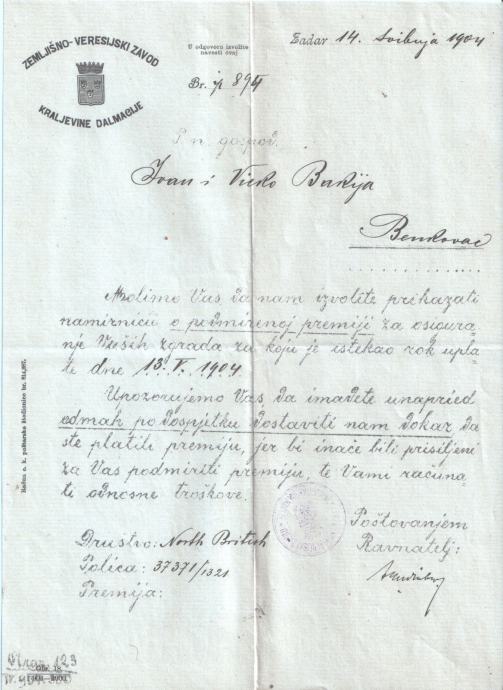 ZEMLJIŠNO-VERESIJSKI ZAVOD
KRALJEVINE DALMACIJE
U odgovoru izvolite
navesti ovaj
Br.
Zadar 14. svibnja 1904
P. n. gospod.
Ivan i Vicko Bakija
Benkovac
Molimo Vas da nam izvolite prikazati
namirnicu o podmirenoj premiji za osigura-
nje Vaših zgrada za koju je istekao rok upla-
te dne 13. V. 1904.
Upozorujemo Vas da imadete unapried
odmah po dospjetku dostaviti nam dokaz da
ste platili premiju, jer bi inače bili prisiljeni
za Vas podmiriti premiju, te Vami računa-
ti odnosne troškove.
Poštovanjem
Ravnatelj:
Društvo: North British
Polica: 37371/1321
Premija:
Račun c. k. poštarske štedionice br.